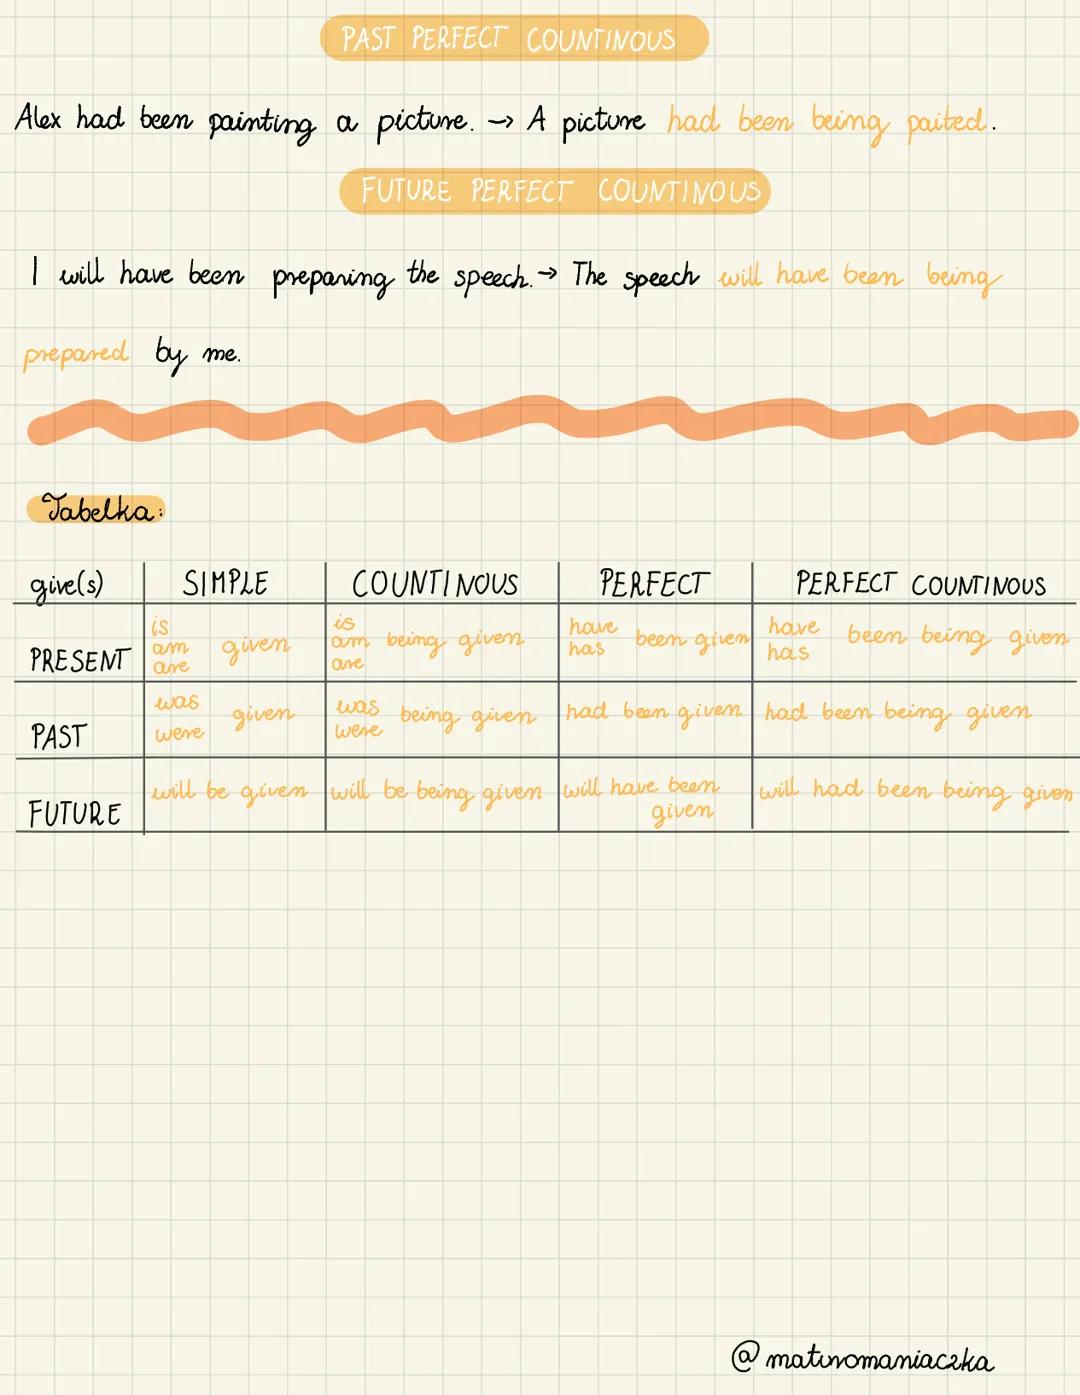 PAST PERFECT COUNTINOUS
Alex had been painting a picture. → A picture had been being paited.
FUTURE PERFECT COUNTINOUS
I will have been preparing the speech. → The speech will have been being
prepared by me.
Tabelka:
give(s) SIMPLE COUNTINOUS PERFECT PERFECT COUNTINOUS
PRESENT is am are given is am are being given have has been given have has been being given
PAST was were given was were being given had been given had been being given
FUTURE will be given will be being given will have been given will had been being given
@maturomaniaczka